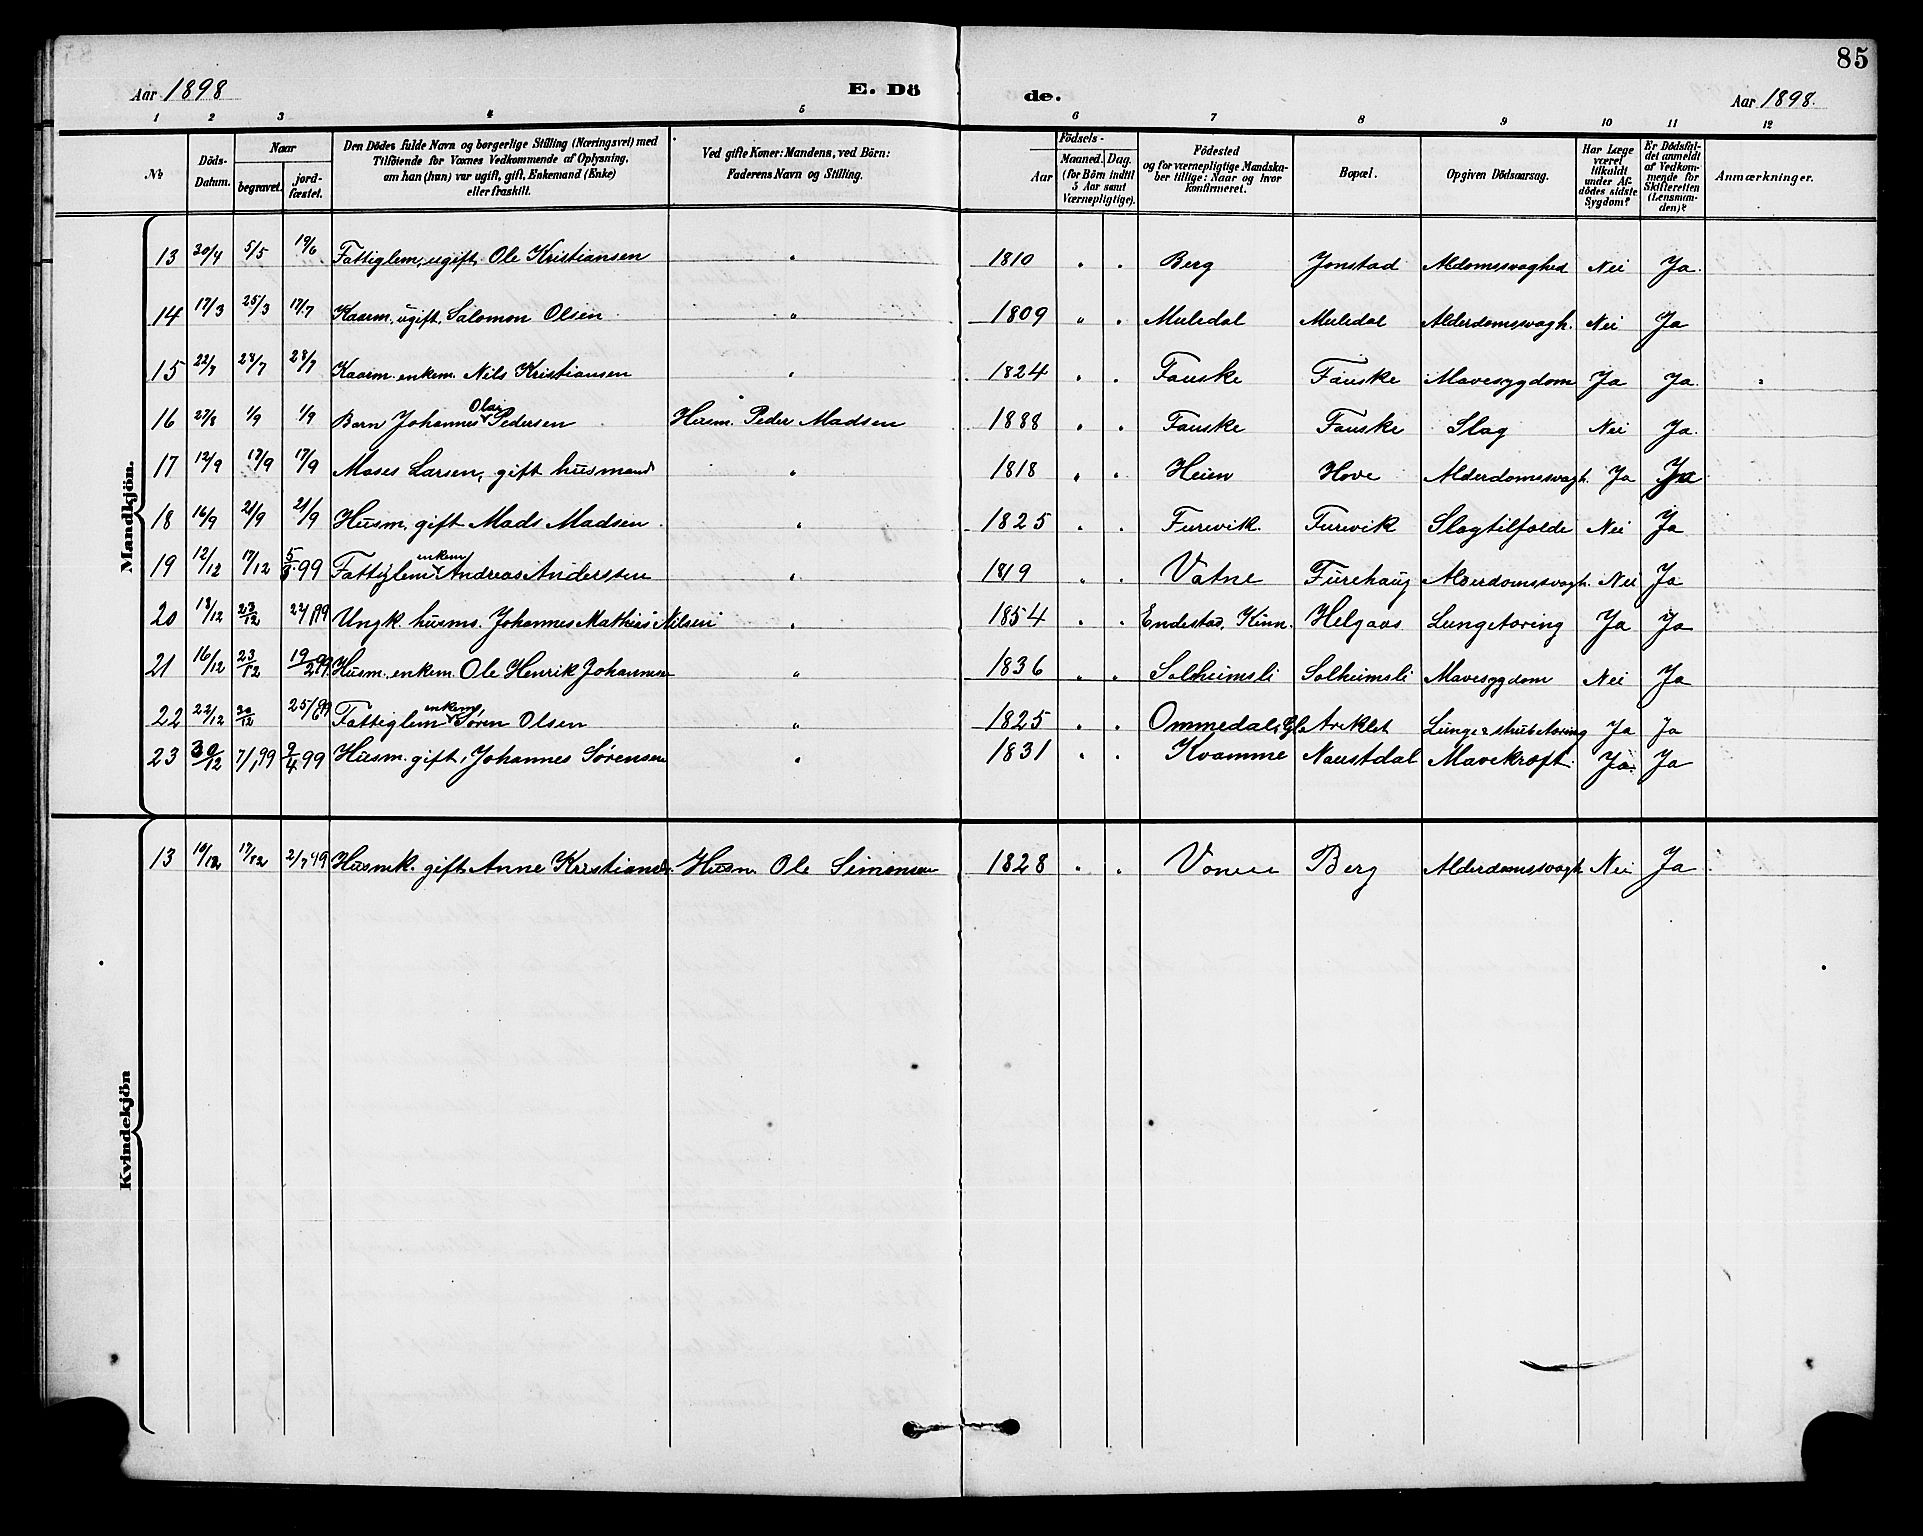 85
Aar 1898 E. Dö de. Aar 1898.
1 2 3 4 5 6 7 8 9 10 11 12
No
Döds-Datum.
Naar
begravet.
jord-fæstet.
Den Dödes fulde Navn og borgerlige Stilling (Næringsvei) med
Tilföiende for Voxnes Vedkommende af Oplysning,
om han (hun) var ugift, gift, Enkemand (Enke)
eller fraskilt.
Ved gifte Koner: Mandens, ved Börn:
Faderens Navn og Stilling.
Födsels-
Aar
Maaned. Dag.
(for Börn indtil
5 Aar samt
Værnepligtige).
Födested
og for værnepligtige Mandska-
ber tillige: Naar og hvor
konfirmeret.
Bopæl.
Opgiven Dödsaarsag.
Har Læge
været
tilkaldt
under Af-
dödes sidste
Sygdom?
Er Dödsfal-
det anmeldt
af Vedkom-
mende for
Skifteretten
(Lensman-
den)?
Anmærkninger.
Mandkjön.
13 30/4 5/5 19/6 Fattiglem, ugift, Ole Kristiansen " 1810 " " Berg Jonstad Aldomssvaghed Nei Ja.
14 17/3 25/3 17/7 Kaarm. ugift, Salomon Olsen " 1809 " " Muledal Muledal Alderdomssvagh. Nei Ja
15 22/7 28/7 28/7 Kaarm. enkem. Nils Kristiansen " 1824 " " Fauske Fauske Mavesygdom Ja Ja. "
16 27/8 1/9 1/9 Barn Johannes Olai Pedersen Husm. Peder Madsen 1888 " " Fauske Fauske Slag Nei Ja.
17 12/9 17/9 17/9 Moses Larsen, gift husmand " 1818 " " Heien Hove Alderdomssvagh. Ja Ja
18 16/9 21/9 21/9 Husm. gift Mads Madsen " 1825 " " Furevik. Furevik Slagtilfælde Nei Ja
19 12/12 17/12 5/3 99 Fattiglem enkem Andreas Anderssen " 1819 " " Vatne Furehaug Alderdomssvagh. Nei Ja
20 18/12 23/12 Ungk. husms. Johannes Mathias Nilsen " 1854 " " Endestad, Kinn. Helgaas Lungetæring Ja Ja
21 16/12 23/12 19/2 99. Husm. enkem. Ole Henrik Johannesen " 1836 " " Solheimsli Solheimsli Mavesygdom Nei Ja
22 22/12 30/12 Fattiglem enkem Søren Olsen " 1825 " " Ommedal, Gl. Areklet Lunge & strubetæring Ja Ja
23 30/12 7/1 99 9/4 99 Husm. gift, Johannes Sørensen " 1831 " " Kvamme Naustdal Mavekræft. Ja. Ja
Kvindekjön
13 10/12 17/12 Husmk. gift, Anne Kristiansd. Husm. Ole Simonsen 1828 " " Vonen Berg Alderdomssvagh Nei Ja